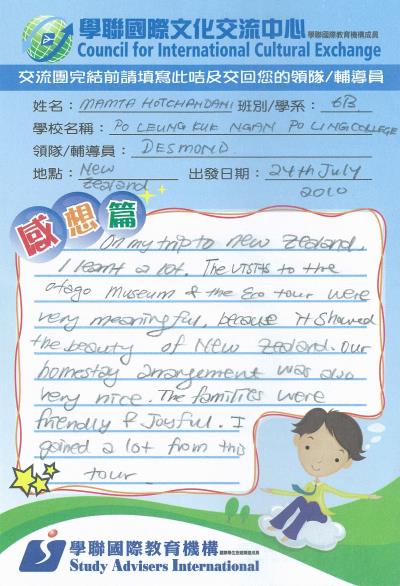 學聯國際文化交流中心 學聯國際教育機構成員
Council for International Cultural Exchange
交流團完結前請填寫此咭及交回您的領隊/輔導員
姓名：MAMTA HOTCHANDANI 班別/學系：6B
學校名稱：PO LEUNG KUK NGAN PO LING COLLEGE
領隊/輔導員：DESMOND
地點：New Zealand 出發日期：24th July 2010
感想篇
On my trip to new zealand,
I learnt a lot. The visits to the
otago museum & the Eco tour were
very meaningful, because it showed
the beauty of New Zealand. Our
homestay arrangement was also
very nice. The families were
friendly & Joyful. I
gained a lot from this
tour
學聯國際教育機構
Study Advisers International